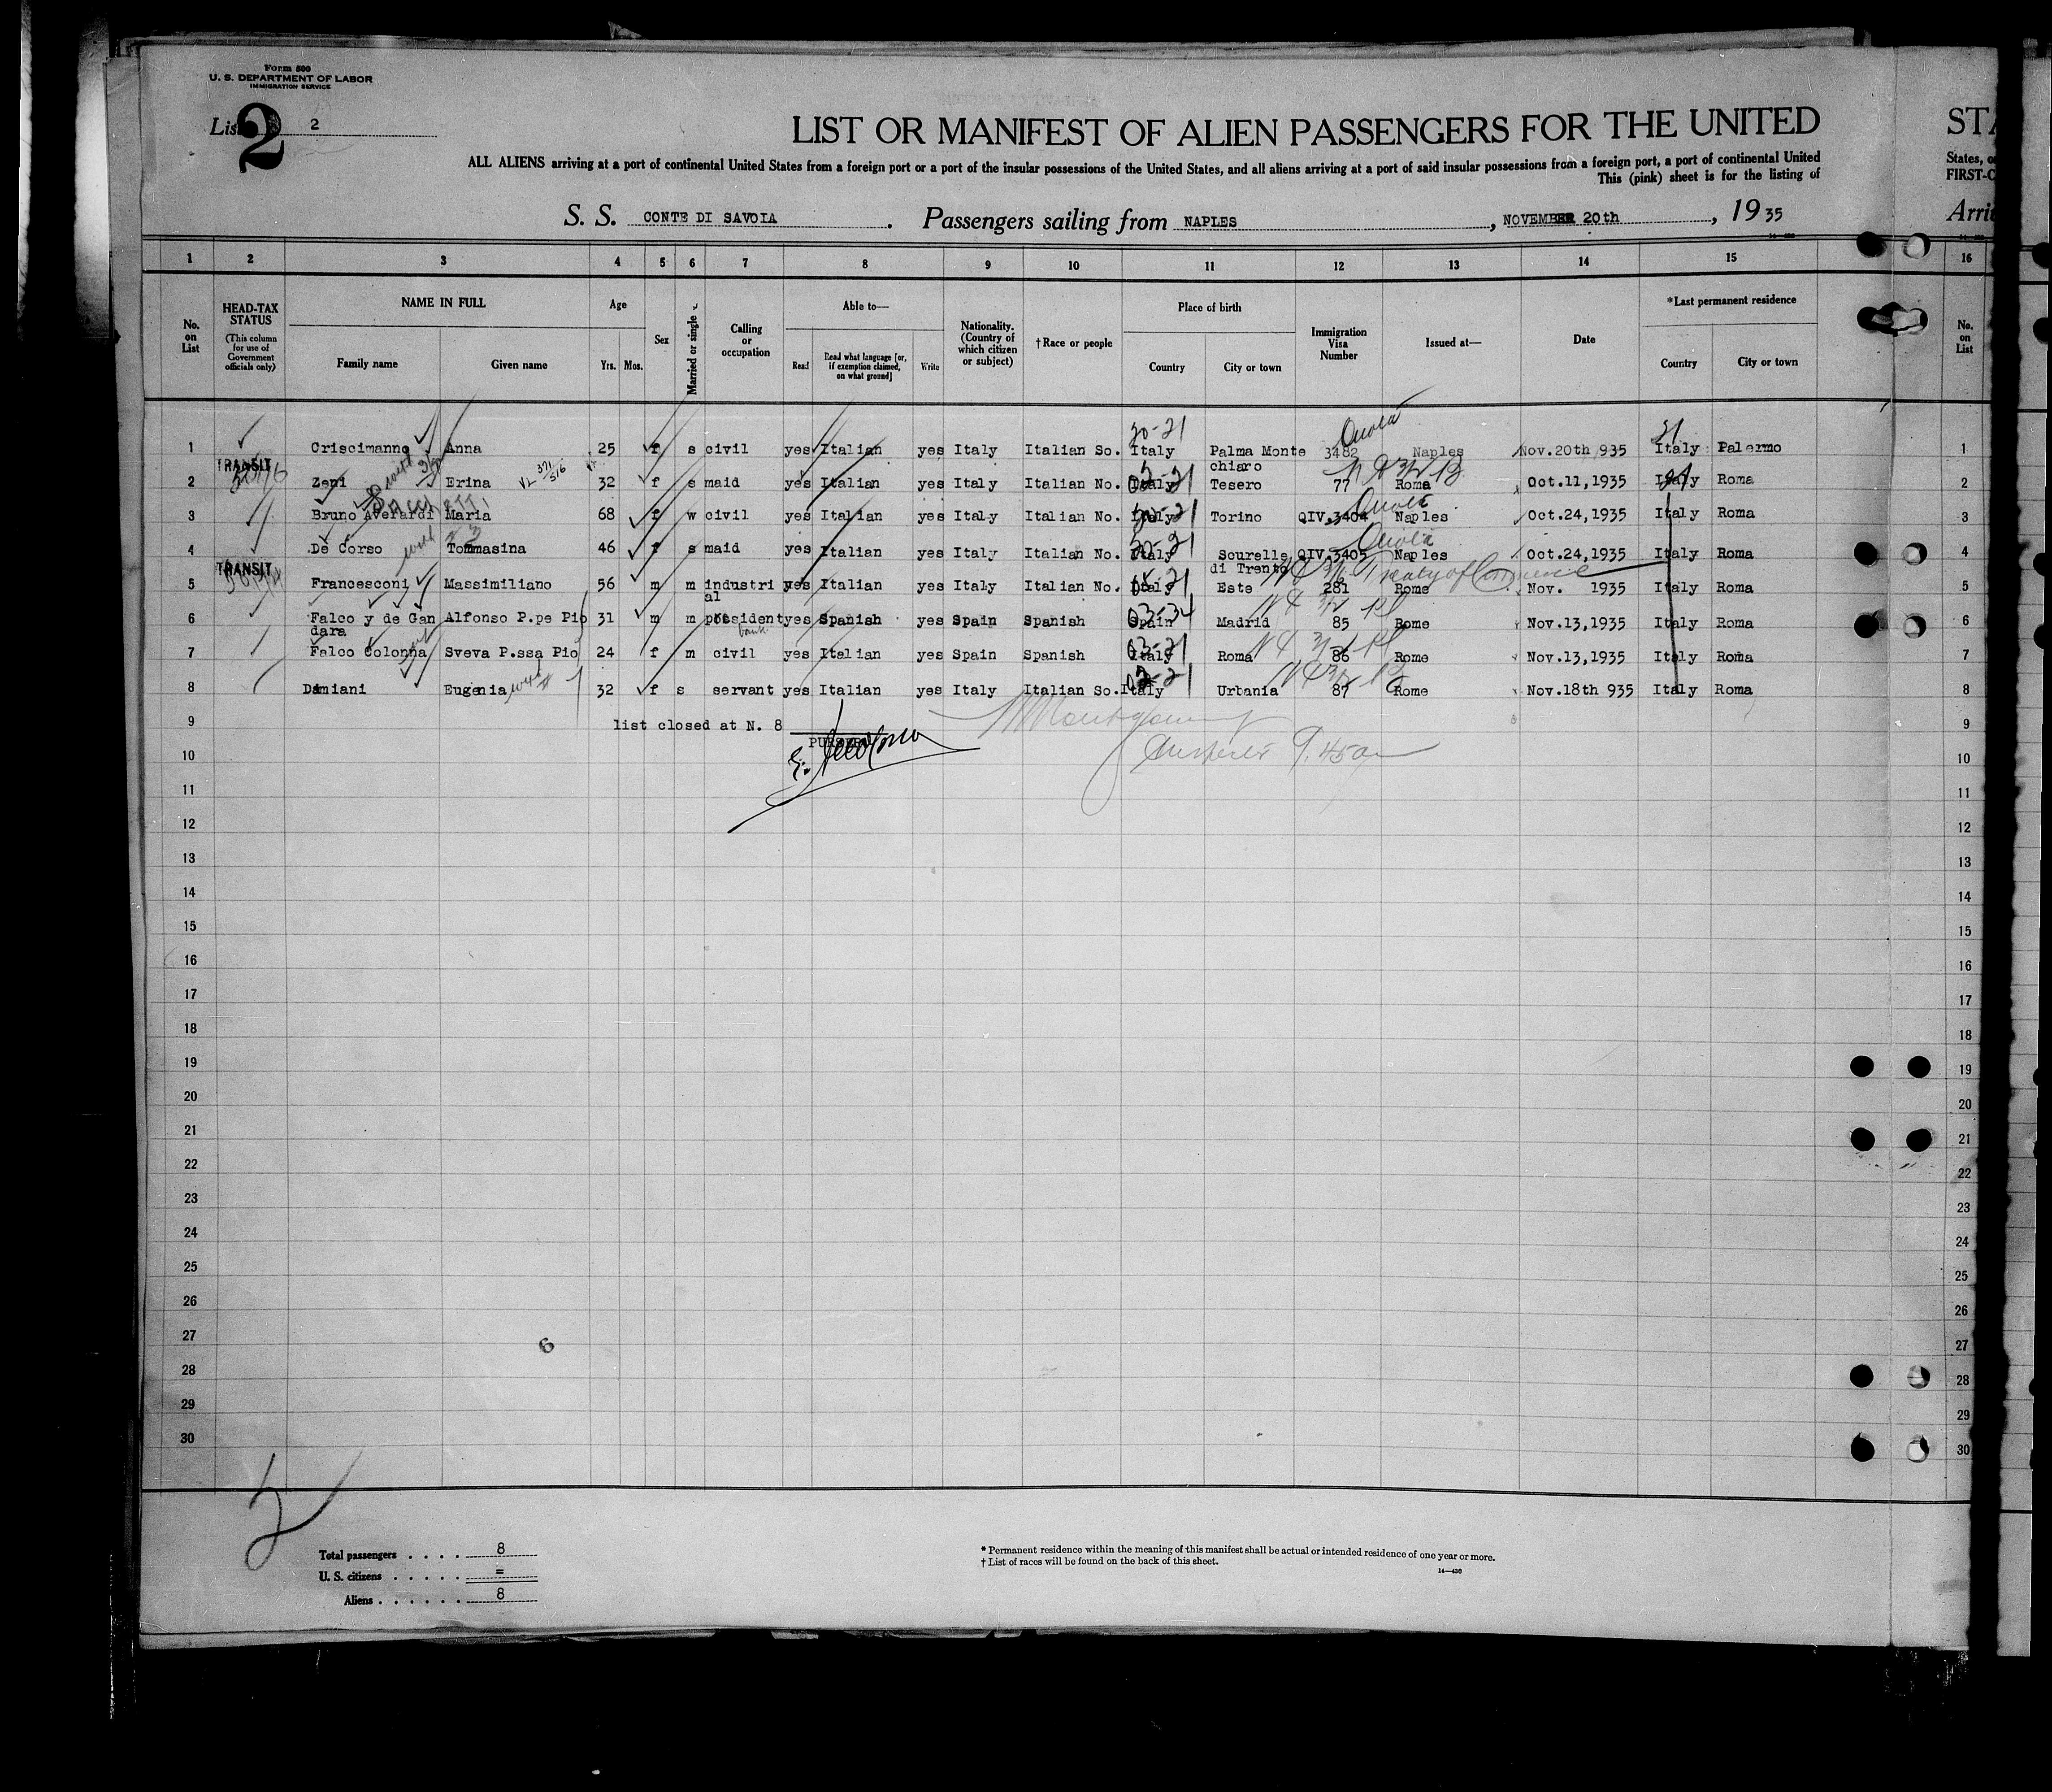 Form 500
U. S. DEPARTMENT OF LABOR
IMMIGRATION SERVICE
List 2
2
LIST OR MANIFEST OF ALIEN PASSENGERS FOR THE UNITED
STA
ALL ALIENS arriving at a port of continental United States from a foreign port or a port of the insular possessions of the United States, and all aliens arriving at a port of said insular possessions from a foreign port, a port of continental United
States, o
This (pink) sheet is for the listing of
FIRST-C
S. S. CONTE DI SAVOIA. Passengers sailing from NAPLES, NOVEMBER 20th, 1935
Arri
1 2 3 4 5 6 7 8 9 10 11 12 13 14 15 16
No. on List
HEAD-TAX STATUS
(This column for use of Government officials only)
NAME IN FULL
Family name Given name
Age
Yrs. Mos.
Sex
Married or single
Calling or occupation
Able to—
Read
Read what language [or, if exemption claimed, on what ground]
Write
Nationality. (Country of which citizen or subject)
†Race or people
Place of birth
Country City or town
Immigration Visa Number
Issued at—
Date
*Last permanent residence
Country City or town
No. on List
20-21 Quota 21
1 Criscimanno Anna 25 f s civil yes Italian yes Italy Italian So. Italy Palma Monte chiaro 3482 Naples Nov.20th 935 Italy Palermo 1
TRANSIT
2 Zeni Erina 32 f s maid yes Italian yes Italy Italian No. Italy Tesero 77 Roma Oct.11,1935 Italy Roma 2
Quota
3 Bruno Averardi Maria 68 f w civil yes Italian yes Italy Italian No. Italy Torino QIV.3404 Naples Oct.24,1935 Italy Roma 3
Quota
4 De Corso Tommasina 46 f s maid yes Italian yes Italy Italian No. Italy Scurelle di Trento QIV.3405 Naples Oct.24,1935 Italy Roma 4
TRANSIT
Treaty of Commerce
5 Francesconi Massimiliano 56 m m industrial yes Italian yes Italy Italian No. Italy Este 281 Rome Nov. 1935 Italy Roma 5
6 Falco y de Gandara Alfonso P.pe Pio 31 m m president bank yes Spanish yes Spain Spanish Spain Madrid 85 Rome Nov.13,1935 Italy Roma 6
7 Falco Colonna Sveva P.ssa Pio 24 f m civil yes Italian yes Spain Spanish Italy Roma 86 Rome Nov.13,1935 Italy Roma 7
8 Damiani Eugenia 32 f s servant yes Italian yes Italy Italian So. Italy Urbania 87 Rome Nov.18th 935 Italy Roma 8
9 list closed at N. 8 9
PURSER
10 9.45am 10
11 11
12 12
13 13
14 14
15 15
16 16
17 17
18 18
19 19
20 20
21 21
22 22
23 23
24 24
25 25
26 26
27 6 27
28 28
29 29
30 30
Total passengers . . . . 8
U. S. citizens . . . . . =
Aliens . . . . . . 8
* Permanent residence within the meaning of this manifest shall be actual or intended residence of one year or more.
† List of races will be found on the back of this sheet.
14—430